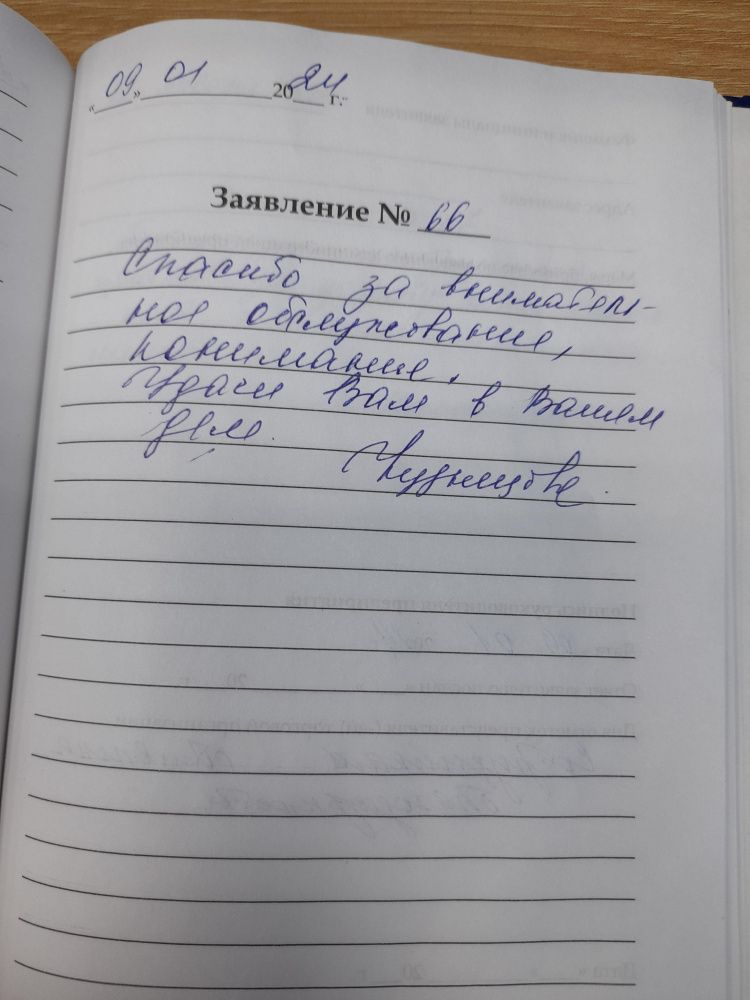 «09» 01 2024 г.
Заявление № 66
Спасибо за вниматель-
ное обслуживание,
понимание.
Удачи Вам в Вашем
деле.